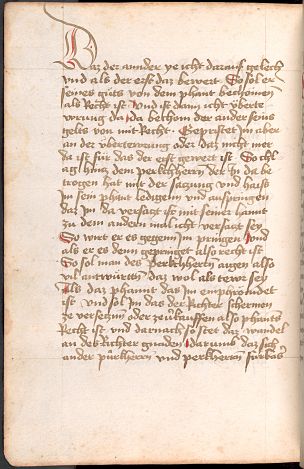 Daz der ander ye icht darauf gelech
vnd als der erst daz bewert So sol er
seines guts von dem phant bechomen
als Recht ist Vnd ist dann icht vberte
wrung da Da bechom der ander seins
gelts von mit Recht Gepristet Im aber
an der vbertewrung oder daz nicht mer
da ist fur das der erst gewert ist So
ag hintz dem perkchherrn der In da be
trogen hat mit der satzung vnd haiss
In sein phant ledigen vnd
daz In da versagt ist mit seiner hannt
zu dem andern mal icht versagt sey
So wirt er es gegen Im pringen Vnd
als er es denn gepringet als recht ist
So sol man des Perkchherrn aigen also
vil antwurten daz wol als tewr sey
Als daz phannt das Im emphrömdet
ist Vnd sol In das der Richter schermen
ze versetzen oder ze uerkauffen als phants
Recht ist vnd darnach so stet daz wandel
an des Richter gnaden Darumb daz sich
ander purkherrn vnd perkherrn